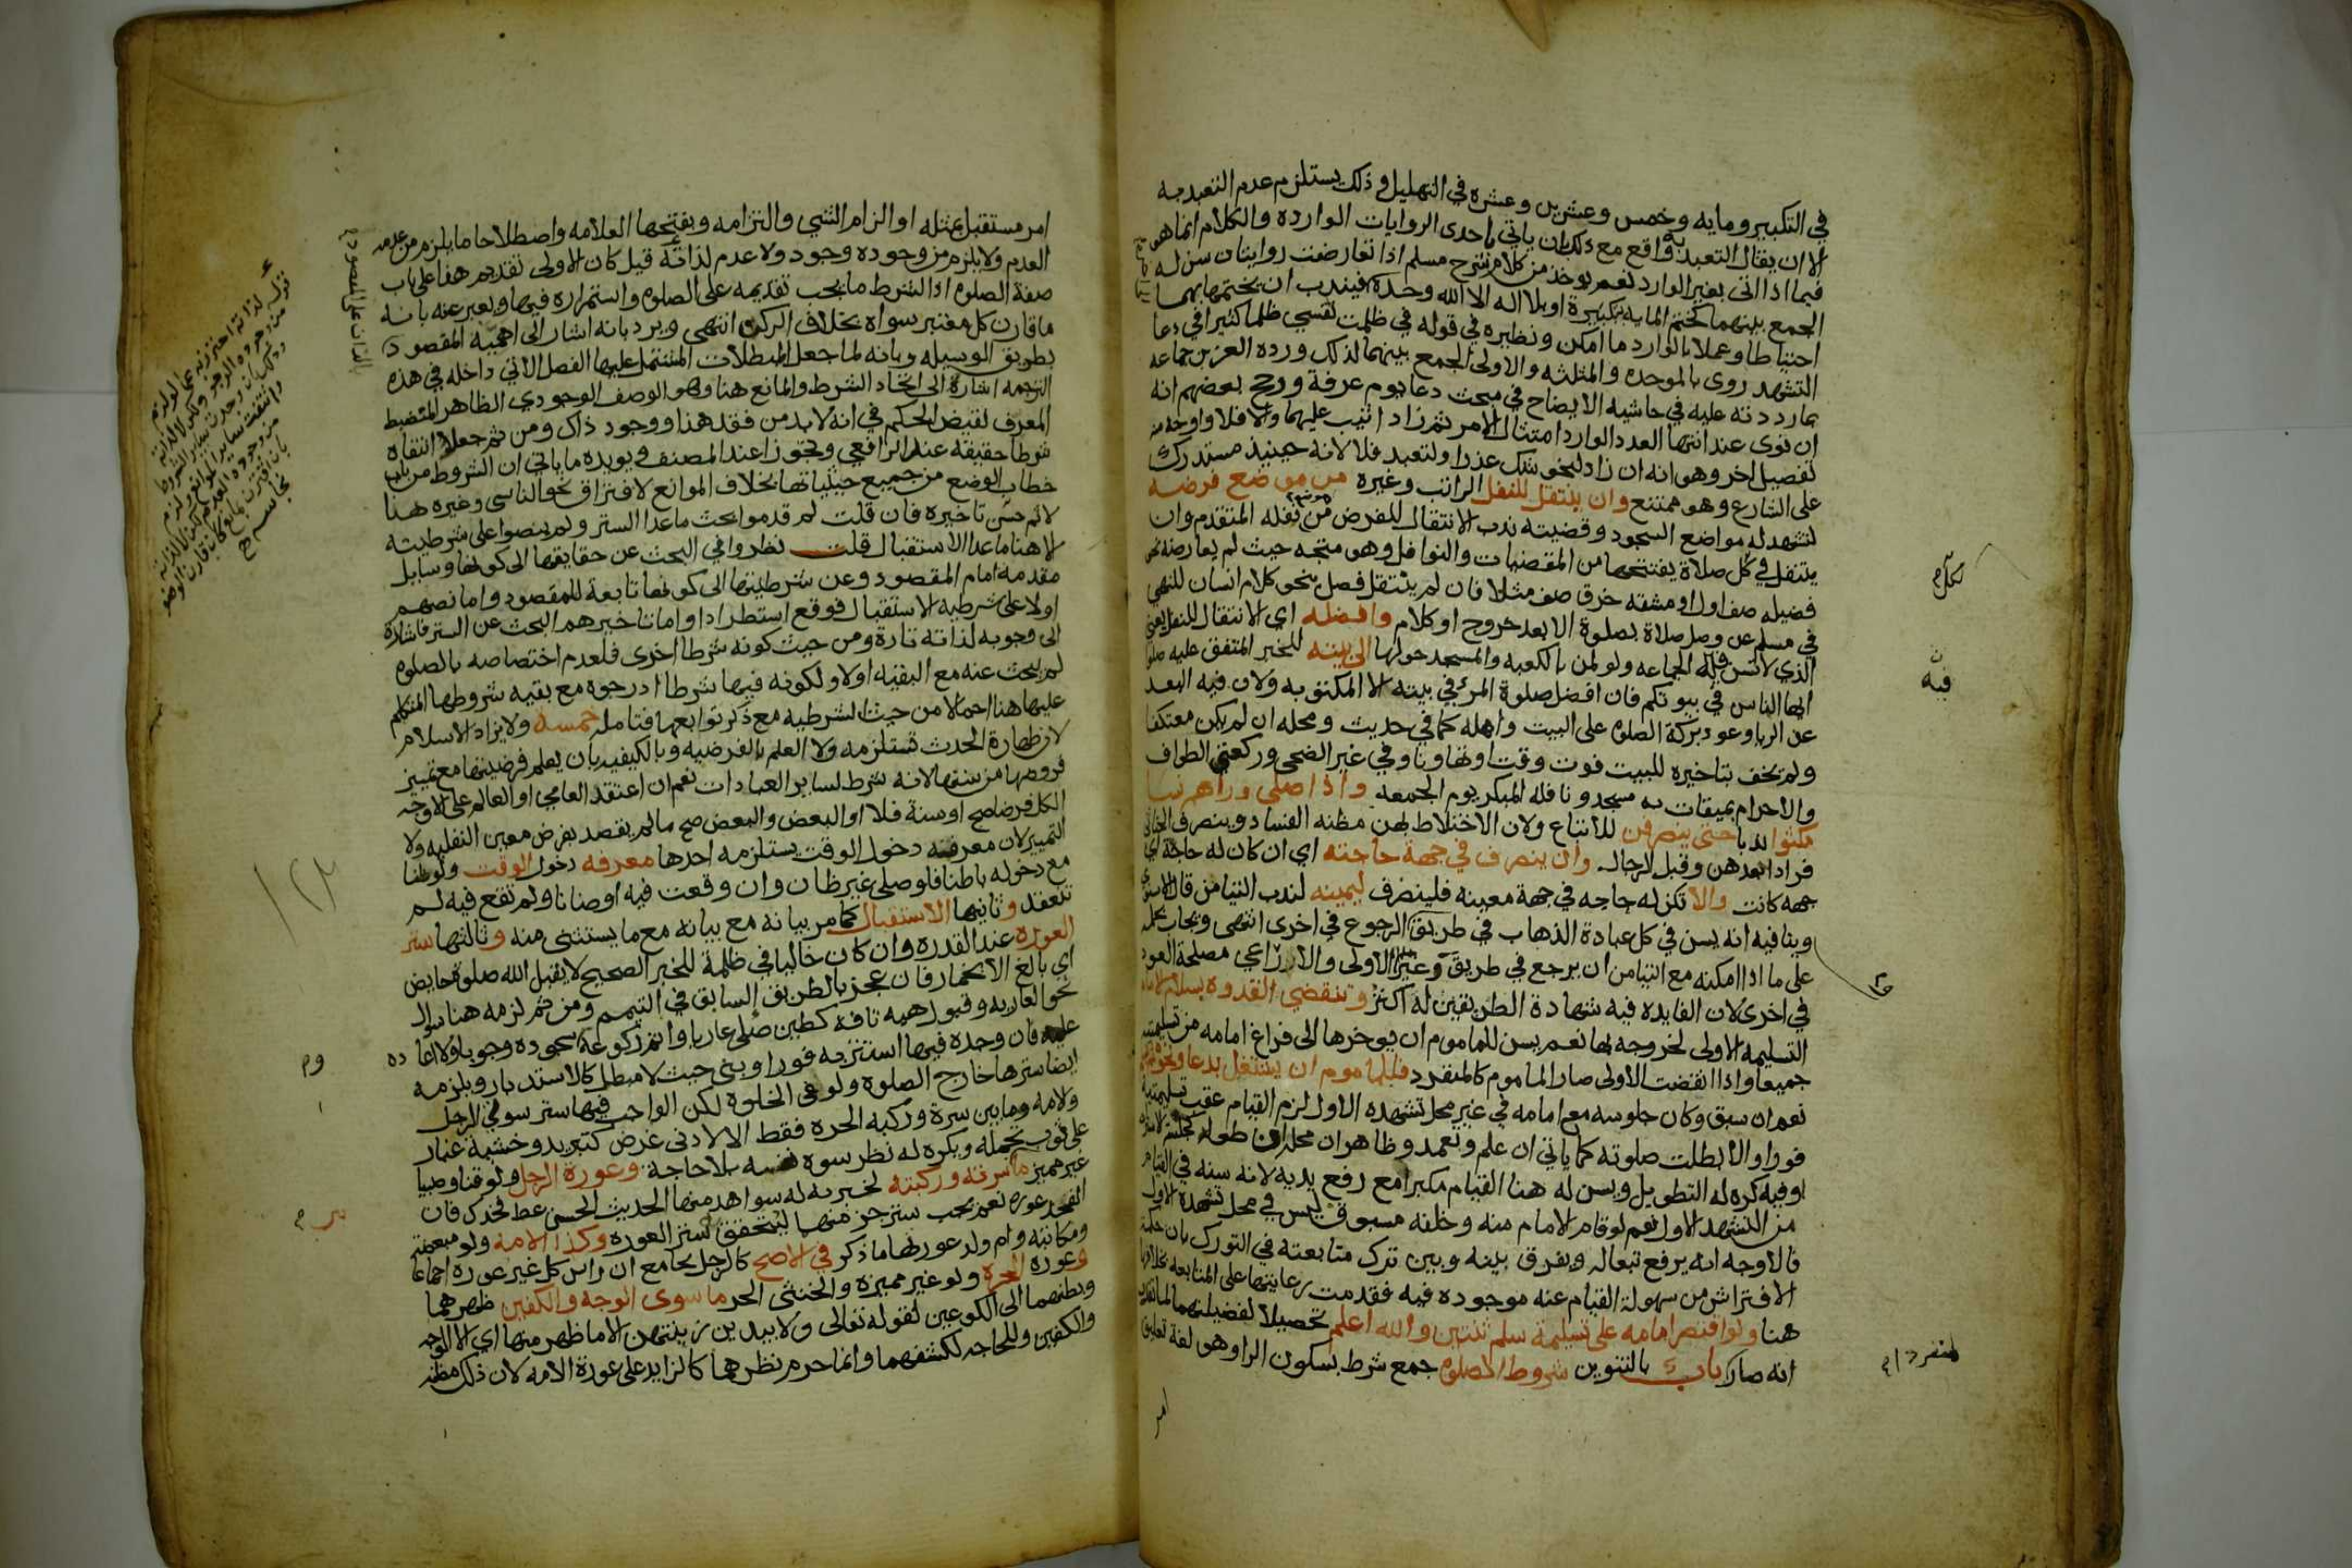 في التكبير ومايه وخمس وعشرين وعشره في التهليل وذلك يستلزم عدم التعبد به
الا ان يقال التعبد به واقع مع ذلك بان ياتي باحدى الروايات الوارده والكلام انما هو
فيما اذا اتى بغير الوارد نعم يوخذ من كلام شرح مسلم اذا تعارضت روايتان سن له
الجمع بينهما كختم المايه بتكبيرة او بلا اله الا الله وحده فيندب ان يختمها بهما
احتياطا وعملا بالوارد ما امكن ونظيره في قوله في ظلمت نفسي ظلما كثيرا في دعا
التشهد روى بالموحده والمثلثه والاولى الجمع بينهما لذلك ورده العز بن جماعه
بما رددته عليه في حاشيه الايضاح في مبحث دعا يوم عرفة ورجح بعضهم انه
ان نوى عند انتها العدد الوارد امتثال الامر ثم زاد اثيب عليهما والا فلا واوجه منه
تفصيل اخر وهو انه ان زاد لنحو شك عذر او لتعبد فلا لانه حينيذ مستدرك
على الشارع وهو ممتنع وان ينتقل للنفل الراتب وغيره من موضع فرضه
لتشهد له مواضع السجود وقضيته ندب الانتقال للفرض من موضع نفله المتقدم وان
ينتقل في كل صلاة يفتتحها من المقضيات والنوافل وهو متجه حيث لم يعارضه نحو
فضيله صف اول او مشقه خرق صف مثلا فان لم ينتقل فصل بنحو كلام انسان للنهي
في مسلم عن وصل صلاة بصلوة الا بعد خروج او كلام وافضله اي الانتقال للنفل يعني
الذي لا تسن فيه الجماعه ولو لمن بالكعبه والمسجد حولها الى بيته للخبر المتفق عليه صلوا
ايها الناس في بيوتكم فان افضل صلوة المرء في بيته الا المكتوبه ولان فيه البعد
عن الريا وعود بركة الصلوه على البيت واهله كما في حديث ومحله ان لم يكن معتكفا
ولم يخف بتاخيره للبيت فوت وقت او تهاونا وفي غير الضحى وركعتي الطواف
والاحرام بميقات به مسجد ونافله المبكر يوم الجمعه واذا صلى وراهم نسا
مكثوا ندبا حتى ينصرفن للاتباع ولان الاختلاط بهن مظنه الفساد وينصرف الخناثى
فرادا بعدهن وقبل الرجال وان ينصرف في جهة حاجته اي ان كان له حاجة اي
جهه كانت والا تكن له حاجه في جهة معينه فلينصرف ليمينه لندب التيامن قال الاسنوي
وينافيه انه يسن في كل عبادة الذهاب في طريق الرجوع في اخرى انتهى ويجاب بحمله
على ما اذا امكنه مع التيامن ان يرجع في طريق غير الاولى والا راعي مصلحة العود
في اخرى لان الفايده فيه شهادة الطريقين له اكثر وتنقضي القدوه بسلام الامام
التسليمه الاولى لخروجه بها نعم يسن للماموم ان يوخرها الى فراغ امامه من تسليمتيه
جميعا واذا انقضت الاولى صار الماموم كالمنفرد فللماموم ان يشتغل بدعا ونحوه
نعم ان سبق وكان جلوسه مع امامه في غير محل تشهده الاول لزم القيام عقب تسليمتيه
فورا والا بطلت صلوته كما ياتي ان علم وتعمد وظاهر ان محله ان طوله كجلسة الاستراحة
او فيه كره له التطويل ويسن له هنا القيام مكبرا مع رفع يديه لانه سنه في القيام
من التشهد الاول نعم لو قام الامام منه وخلفه مسبوق ليس في محل تشهده الاول
فالاوجه انه يرفع تبعا له ويفرق بينه وبين ترك متابعته في التورك بان حكمة
الافتراش من سهولة القيام عنه موجوده فيه فقدمت رعايتها على المتابعه بخلاف ما
هنا ولو اقتصر امامه على تسليمة سلم ثنتين والله اعلم تحصيلا لفضيلتهما لما تقرر
انه صار كالمنفرد باب بالتنوين شروط الصلوه جمع شرط بسكون الرا وهو لغة تعليق
لكل م
فيه
منفرد
امر
امر مستقبل بمثله او الزام الشي والتزامه وبفتحها العلامه واصطلاحا ما يلزم من عدمه
العدم ولا يلزم من وجوده وجود ولا عدم لذاته قيل كان الاولى تقديم هذا على باب
صفة الصلوه اذ الشرط ما يجب تقديمه على الصلوه واستمراره فيها ويعبر عنه بانه
ما قارن كل معتبر سواه بخلاف الركن انتهى ويرد بانه اشار الى اهمية المقصود
بطريق الوسيله وبانه لما جعل المبطلات المشتمل عليها الفصل الاتي داخله في هذه
الترجمه اشارة الى اتحاد الشرط والمانع هنا وهو الوصف الوجودي الظاهر المنضبط
المعرف لنقيض الحكم في انه لا بد من فقد هذا ووجود ذاك ومن ثم جعل انتفاه
شرطا حقيقة عند الرافعي وتجوزا عند المصنف ويويده ما ياتي ان الشروط من باب
خطاب الوضع من جميع حيثياتها بخلاف الموانع لافتراق نحو الناسى وغيره هنا
لا ثم حسن تاخيره فان قلت لم قدموا بحث ما عدا الستر ولم ينصوا على شرطيته
لا هنا ما عدا الاستقبال قلت نظروا في البحث عن حقايقها الى كونها وسايل
مقدمه امام المقصود وعن شرطيتها الى كونها تابعة للمقصود واما نصهم
اولا على شرطيه الاستقبال فوقع استطرادا واما تاخيرهم البحث عن الستر فاشارة
الى وجوبه لذاته تارة ومن حيث كونه شرطا اخرى فلعدم اختصاصه بالصلوه
لم يبحث عنه مع البقيه اولا ولكونه فيها شرطا ادرجوه مع بقيه شروطها المتكلم
عليها هنا اجمالا من حيث الشرطيه مع ذكر توابعها فتامله خمسه ولا يزاد الاسلام
لان طهارة الحدث تستلزمه ولا العلم بالفرضيه وبالكيفيه بان يعلم فرضيتها مع تمييز
فروضها من سننها لانه شرط لساير العبادات نعم ان اعتقد العامي او العالم على الاوجه
الكل فرضا صح او سنة فلا او البعض والبعض صح ما لم يقصد بفرض معين النفليه ولا
التمييز لان معرفه دخول الوقت يستلزمه احدها معرفه دخول الوقت ولو ظنا
مع دخوله باطنا فلو صلى غير ظان وان وقعت فيه او ظانا ولم تقع فيه لم
تنعقد وثانيها الاستقبال كما مر بيانه مع بيانه مع ما يستثنى منه وثالثها ستر
العورة عند القدره وان كان خاليا في ظلمة للخبر الصحيح لا يقبل الله صلوة حايض
اي بالغ الا بخمار فان عجز بالطريق السابق في التيمم ومن ثم لزمه هنا سوال
نحو العاريه وقبول هبه تافه كطين صلى عاريا واتم ركوعه وسجوده وجوبا ولا اعاده
عليه فان وجده فيها استتر به فورا وبنى حيث لا مبطل كالاستدبار ويلزمه
ايضا سترها خارج الصلوه ولو في الخلوة لكن الواجب فيها ستر سوتي الرجل
والامه وما بين سرة وركبه الحره فقط الا لادنى غرض كتبريد وخشية غبار
على ثوب تجمله ويكره له نظر سوة نفسه بلا حاجة وعورة الرجل ولو قنا وصبيا
غير مميز ما بين سرته وركبته لخبر به له شواهد منها الحديث الحسن غط فخذك فان
الفخذ عوره نعم يجب ستر جزء منهما ليتحقق ستر العوره وكذا الامة ولو مبعضة
ومكاتبه وام ولد عورتها ما ذكر في الاصح كالرجل بجامع ان راس كل غير عوره اجماعا
وعورة الحره ولو غير مميزه والخنثى الحر ما سوى الوجه والكفين ظهرهما
وبطنهما الى الكوعين لقوله تعالى ولا يبدين زينتهن الا ما ظهر منها اي الا الوجه
والكفين وللحاجه لكشفهما وانما حرم نظرهما كالزايد على عورة الامه لان ذلك مظنه